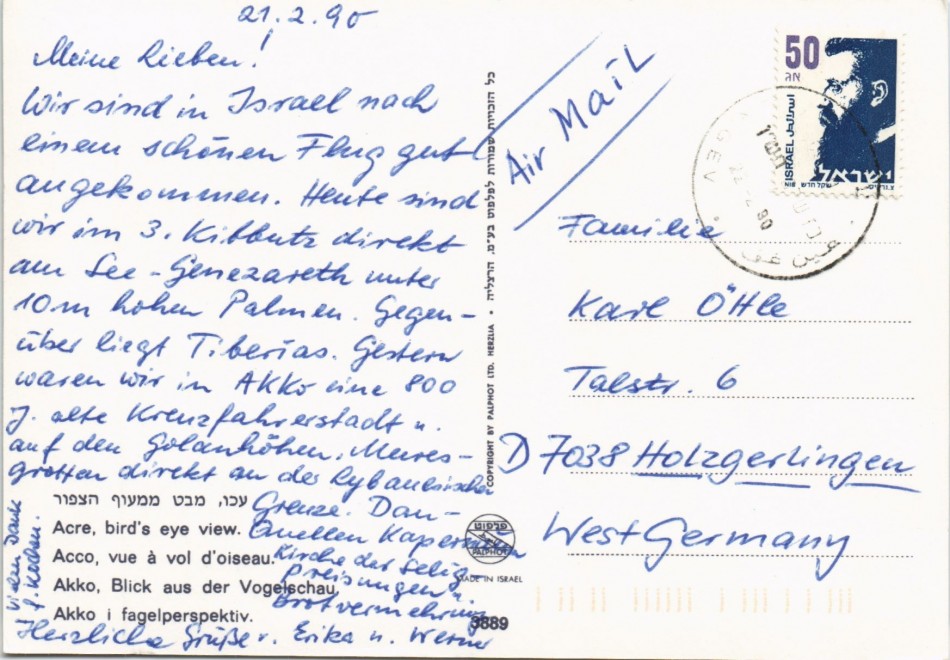 21.2.90
Meine Lieben!
Wir sind in Israel nach
einem schönen Flug gut
angekommen. Heute sind
wir im 3. Kibbutz direkt
am See-Genezareth unter
10m hohen Palmen. Gegen-
über liegt Tiberias. Gestern
waren wir in AKKo eine 800
J. alte Kreuzfahrerstadt u.
auf den Golanhöhen, Meeres-
grotten direkt an der Lybanesischen
Grenze. Dan-
Quellen Kapernaum
Kirche der Selig-
preisungen u.
Brotvermehrung
Herzliche Grüße v. Erika u. Werner
Vielen Dank
f. Kochen.
עכו, מבט ממעוף הצפור
Acre, bird's eye view.
Acco, vue à vol d'oiseau.
Akko, Blick aus der Vogelschau.
Akko i fagelperspektiv.
כל הזכויות שמורות לפלפוט בע"מ, הרצליה • COPYRIGHT BY PALPHOT LTD. HERZLIA
פלפוט
PALPHOT
MADE IN ISRAEL
3889
Air Mail
50
אג
ISRAEL اسرائيل
ישראל
שקל חדש NIS
GEV
90
Familie
Karl Öhle
Talstr. 6
D 7038 Holzgerlingen
West Germany